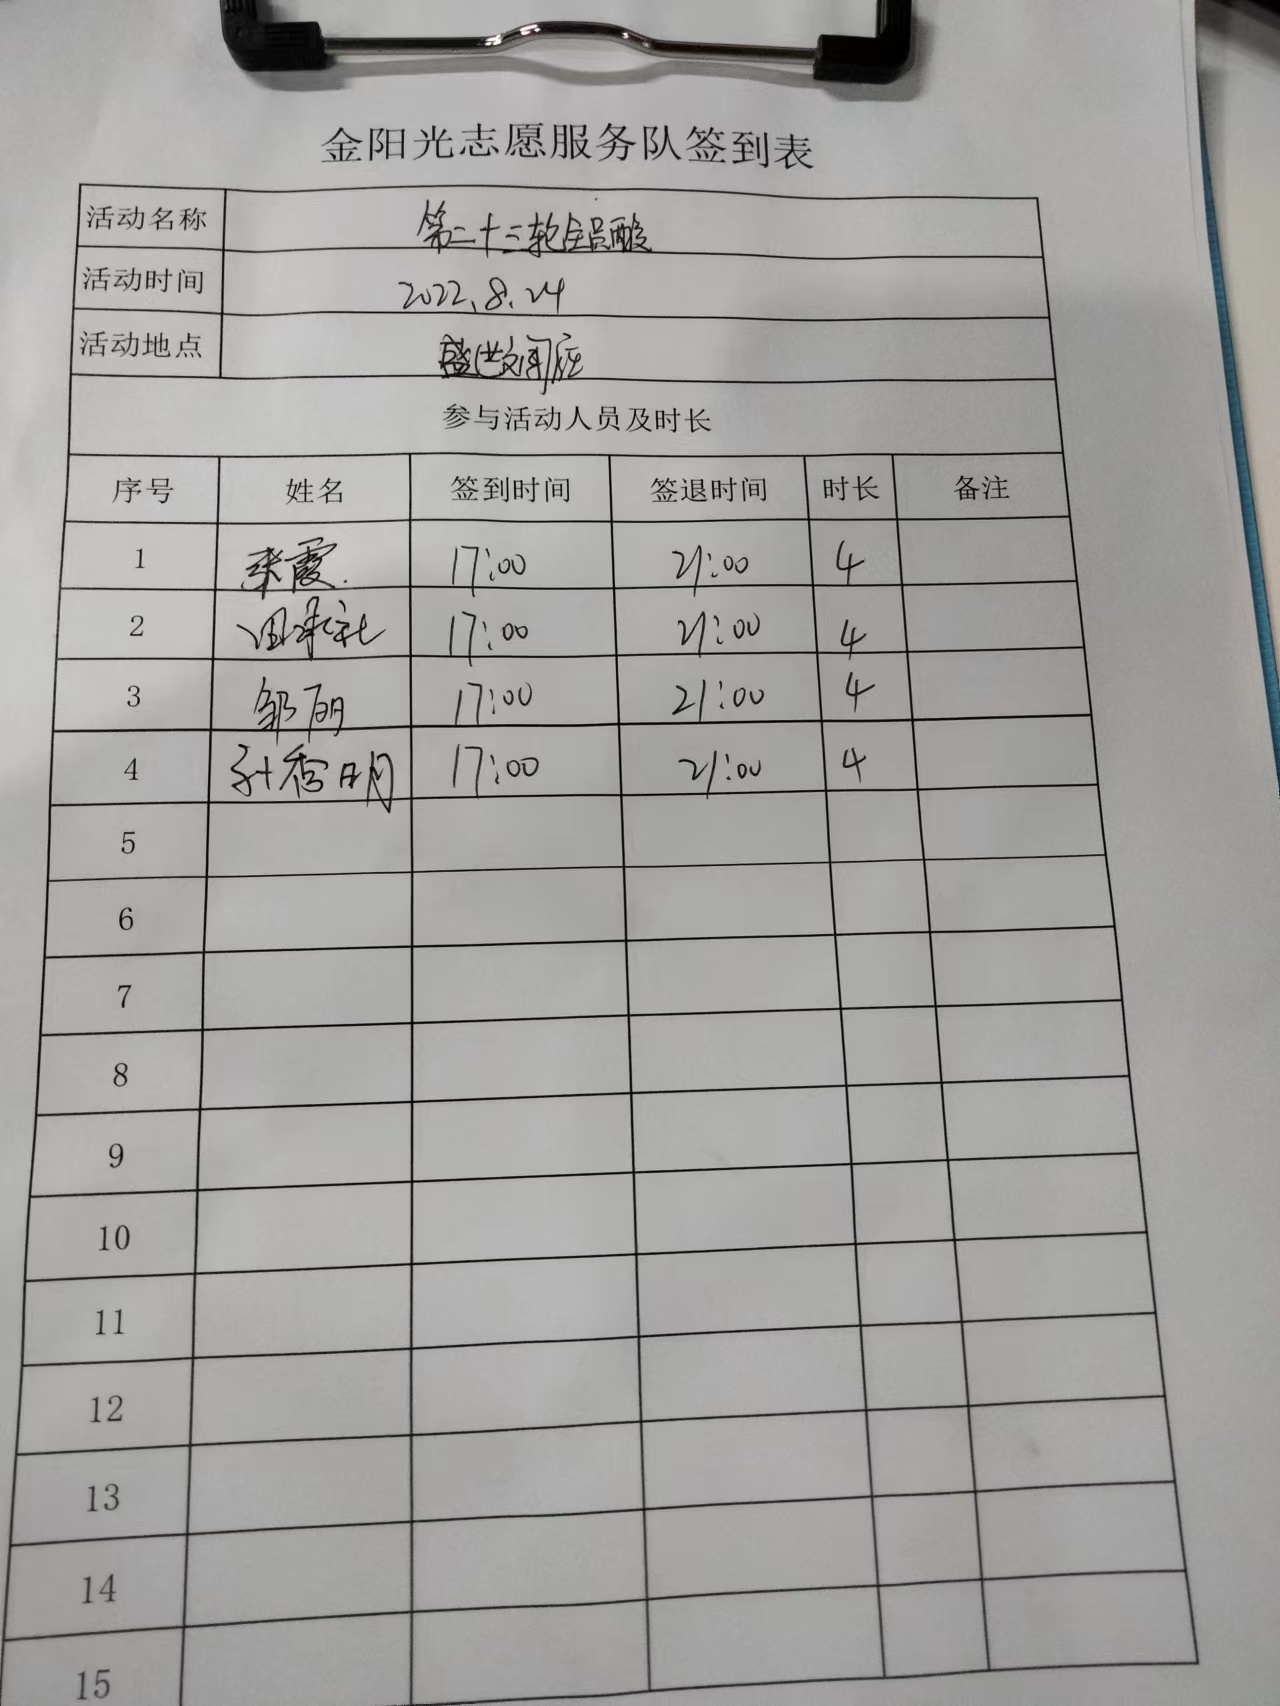 金阳光志愿服务队签到表
活动名称 第二十三轮全员酸
活动时间 2022.8.24
活动地点 盛世闲庭
参与活动人员及时长
序号 姓名 签到时间 签退时间 时长 备注
1 霞 17:00 21:00 4
2 17:00 21:00 4
3 邹丽 17:00 21:00 4
4 孙秀明 17:00 21:00 4
5
6
7
8
9
10
11
12
13
14
15